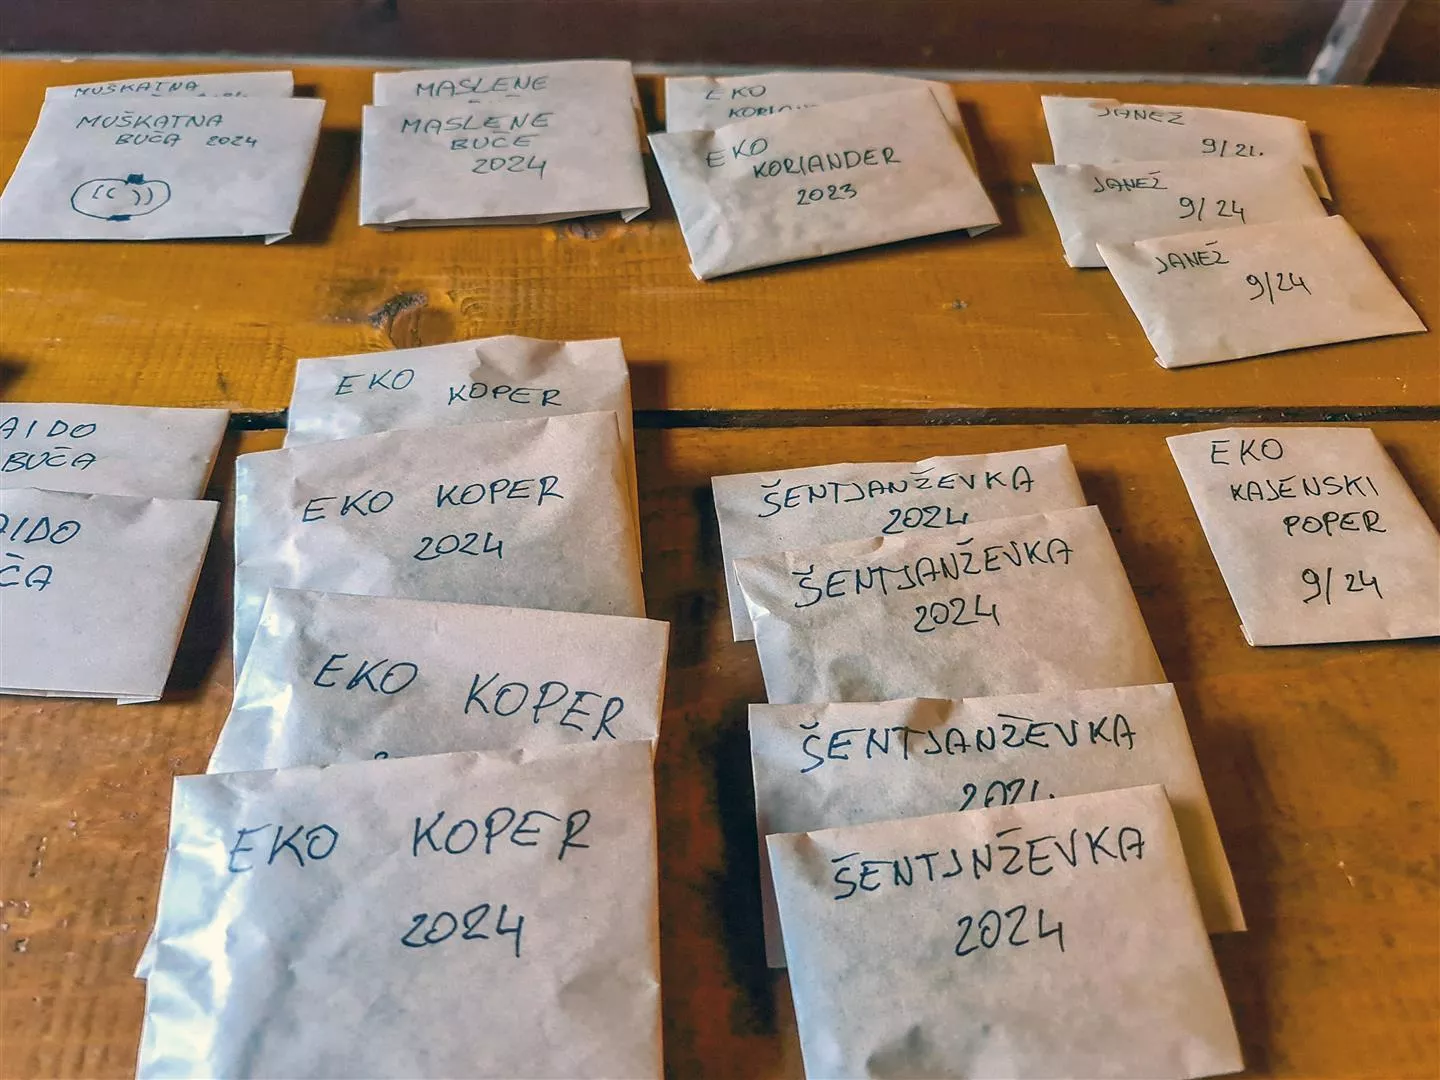 MUŠKATNA
MUŠKATNA
BUČA 2024
MASLENE
MASLENE
BUČE
2024
EKO
EKO
KORIANDER
2023
JANEŽ
9/21.
JANEŽ
9/24
JANEŽ
9/24
AIDO
BUČA
AIDO
ČA
EKO KOPER
EKO KOPER
2024
EKO KOPER
EKO KOPER
2024
ŠENTJANŽEVKA
2024
ŠENTJANŽEVKA
2024
ŠENTJANŽEVKA
2024
ŠENTJNŽEVKA
2024
EKO
KAJENSKI
POPER
9/24